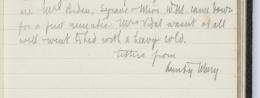 are Mrs Baden, Sgrave & Miss W.M. came down
for a few minutes Mrs Vidal wasn't at all
well - went to bed with a heavy cold.
from
Aunty Mary